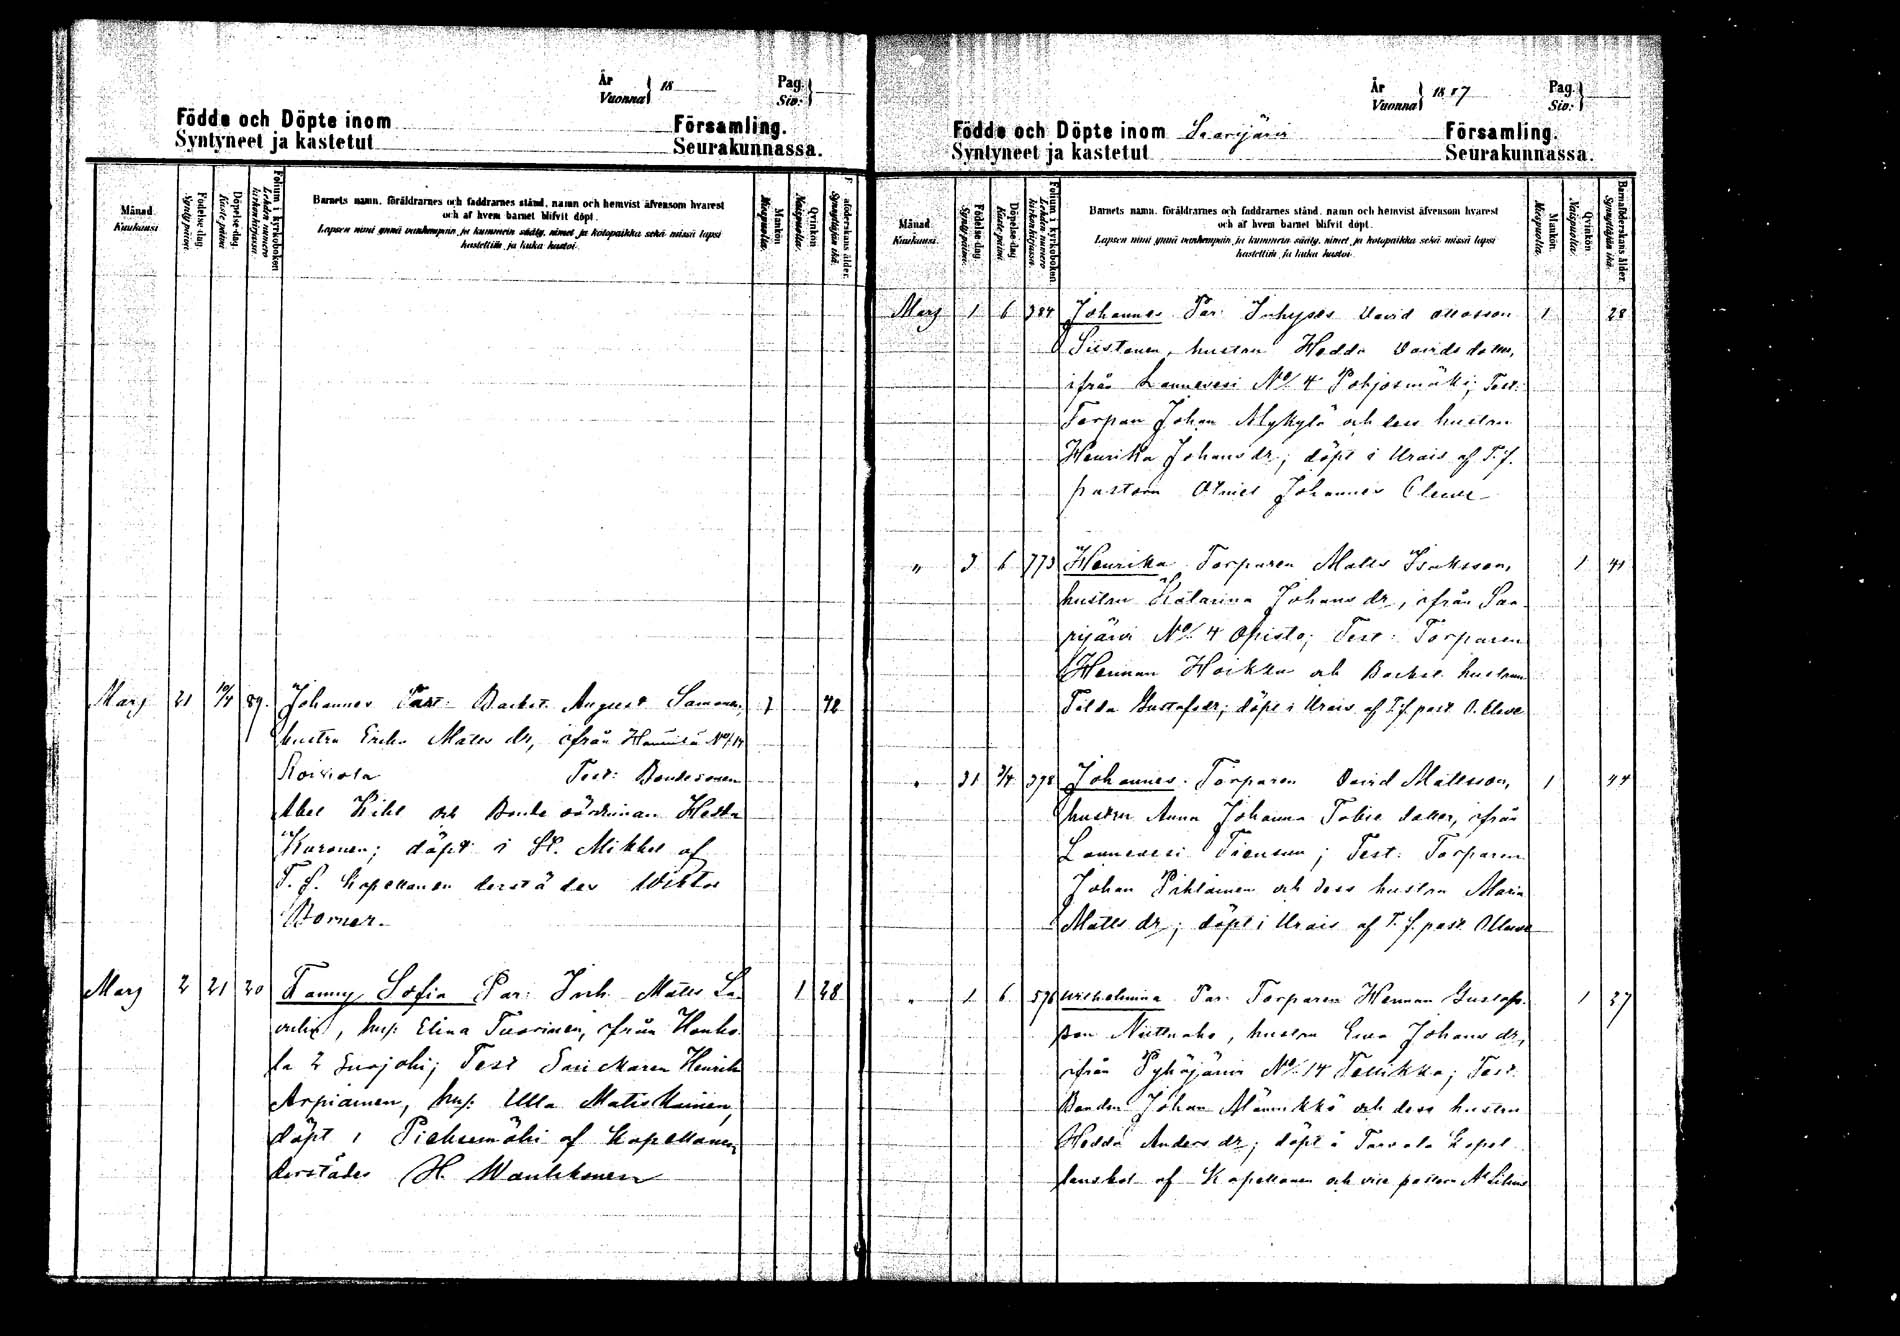 År
Vuonna } 18
Pag.
Siv. }
Födde och Döpte inom Församling.
Syntyneet ja kastetut Seurakunnassa.
Månad.
Kuukausi
Födelse-dag.
Syntypäivä.
Döpelse-dag.
Kastepäivä.
Folium i kyrkoboken
Lehden numero
kirkonkirjassa.
Barnets namn, föräldrarnes och faddrarnes stånd, namn och hemvist äfvensom hvarest
och af hvem barnet blifvit döpt.
Lapsen nimi ynnä vanhempain ja kummein sääty, nimet ja kotopaikka sekä missä lapsi
kastettiin ja kuka kastoi.
Mankön
Miespuolia.
Qvinkön
Naispuolia.
Barnaföderskans ålder.
Synnyttäjän ikä.
Mars 21 10/4 89. Johannes Backst. August Samonen, 1 42
hustru Erika Matts dr, ifrån No 14
Koivola Test: Bondesonen
Abel Kihl och Bonde Hedda
Kuronen; döpt i St. Mikkel af
T. f. Kapellanen derstädes Wiktor
Mars 2 21 20 Fanny Sofia Par: Inh. Matts 1 28
hus: Elina Tuorinen, ifrån Honko-
la 2 Test Henrik
Arpiainen, hus: Ulla Matiskainen,
döpt i Pieksemäki af Kapellanen
derstädes H. Wankkonen
År
Vuonna } 1887
Pag.
Siv. }
Födde och Döpte inom Saarijärvi Församling.
Syntyneet ja kastetut Seurakunnassa.
Månad.
Kuukausi.
Födelse-dag
Syntypäivä.
Döpelse-dag
Kastepäivä.
Folium i kyrkoboken.
Lehden numero
kirkonkirjassa.
Barnets namn, föräldrarnes och faddrarnes stånd, namn och hemvist äfvensom hvarest
och af hvem barnet blifvit döpt.
Lapsen nimi ynnä vanhempain ja kummein sääty, nimet ja kotopaikka sekä missä lapsi
kastettiin ja kuka kastoi.
Mankön
Miespuolia.
Qvinkön
Naispuolia.
Barnaföderskans ålder.
Synnyttäjän ikä.
Mars 1 6 384 Johannes Par: Inhyses David 1 28
hustru Hedda Davids dotter,
ifrån Lannevesi No 4 Pohjosmäki; Test:
Torpar Johan Mykylä och dess hustru
Henrika Johans dr; döpt i Urais af T. f.
pastorn Johannes Cleve
" 3 6 773 Henrika Torparen Matts Isaksson, 1 41
hustru Katarina Johans dr, ifrån Saa-
rijärvi No 4 Opisto; Test: Torparen
Herman Hoikka och Backst. hustrun
Tilda Gustafsdr; döpt i Urais af T. f. past. O. Cleve
" 31 3/4 398 Johannes. Torparen David Mattsson, 1 44
hustru Anna Johanna Tobias dotter, ifrån
Lannevesi Test: Torparen
Johan Pihlainen och dess hustru Maria
Matts dr; döpt i Urais af T. f. past. O. Cleve
" 1 6 576 Wilhelmina Par: Torparen Herman Gustafs- 1 37
son hustru Eva Johans dr,
ifrån Pyhäjärvi No 14 Test:
Bonden Johan Männikkö och dess hustru
Hedda Anders dr; döpt i Tarvala Kapel-
lansbol af Kapellanen och vice pastorn